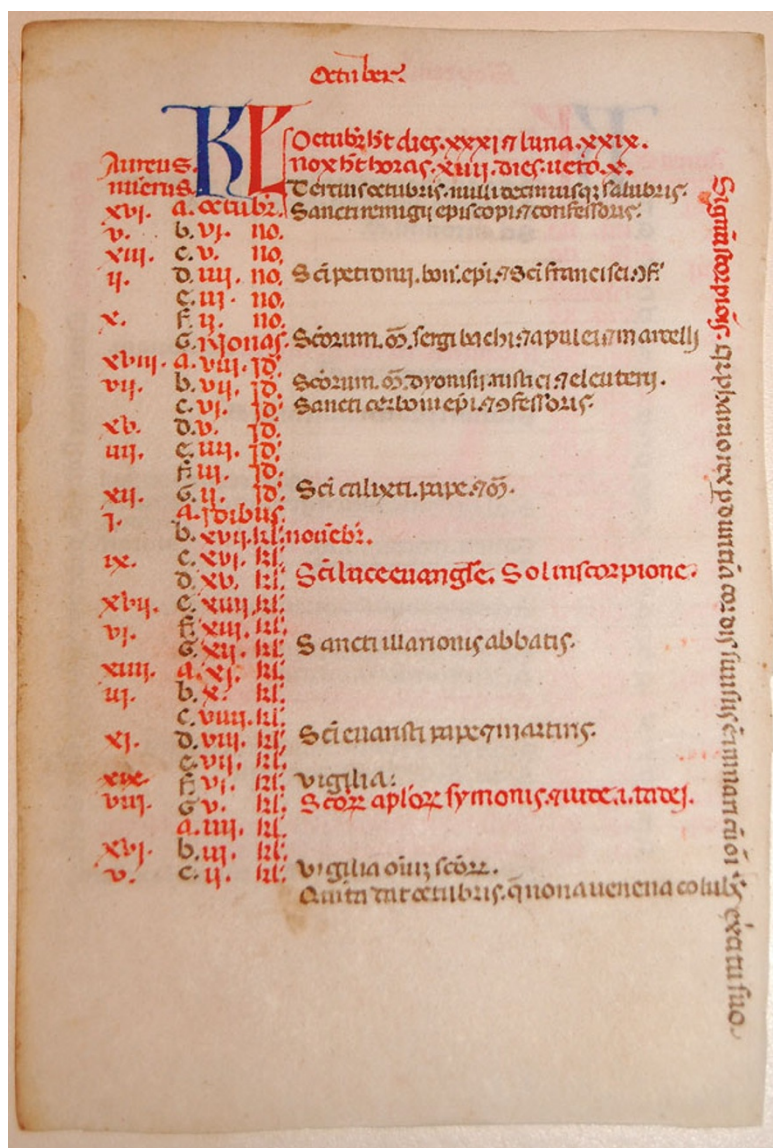 Octuber.
KL Octubr. ht dies. xxxi. ⁊ luna. xxix.
Aureus. nox ht horas. xiiii. dies. uero. x.
nūerus. Tercius octubris. nulli decimusq; salubris.
xvi. a. octubr. Sancti remigii episcopi ⁊ confessoris.
v. b. vi. no.
xiii. c. v. no.
ii. d. iiii. no. Sc̄i petronii. bon̄. ep̄i. ⁊ Sc̄i francisci. ↄf.
e. iii. no.
x. f. ii. no.
G. nonas. Sc̄orum. m̄. sergi bachi. ⁊ apulei ⁊ marcelli
xviii. a. viii. id'.
vii. b. vii. id'. Sc̄orum. m̄. dyonisii. rustici ⁊ eleuterii.
c. vi. id'. Sancti cerbonii ep̄i. ⁊ ↄfessoris.
xv. d. v. id'.
iiii. e. iiii. id'.
f. iii. id'.
xii. G. ii. id'. Sc̄i calixti. pape. ⁊ m̄.
i. a. idibus.
b. xvii. kl. nouēbr.
ix. c. xvi. kl.
d. xv. kl. Sc̄i luce euangl̄e. Sol in scorpione.
xvii. e. xiiii. kl.
vi. f. xiii. kl.
G. xii. kl. Sancti illarionis abbatis.
xiiii. a. xi. kl.
iii. b. x. kl.
c. viiii. kl.
xi. d. viii. kl. Sc̄i euaristi pape ⁊ martiris.
e. vii. kl.
xix. f. vi. kl. vigilia.
viii. G. v. kl. Sc̄orꝝ apl'orꝝ symonis. ⁊ iude. i. tadei.
a. iiii. kl.
xvi. b. iii. kl.
v. c. ii. kl. vigilia oīuꝫ sc̄orꝝ.
Quīta dat octubris. q̄ nona uenena colubris
Signū scorpiōis. pharao rex p duritiā cordis sui